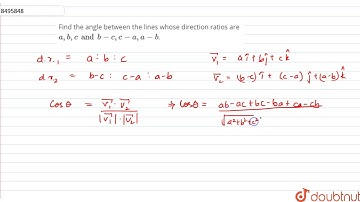 8495848
Find the angle between the lines whose direction ratios are
a, b, c and b − c, c − a, a − b.
d.r.₁ = a : b : c
v⃗₁ = aî + bĵ + ck̂
d.r₂ = b-c : c-a : a-b
v⃗₂ = (b-c) î + (c-a) ĵ + (a-b) k̂
Cosθ = v⃗₁ · v⃗₂ / |v⃗₁| · |v⃗₂| ⇒ Cosθ = ab - ac + bc - ba + ca - cb / √a²+b²+c²
doubtnut